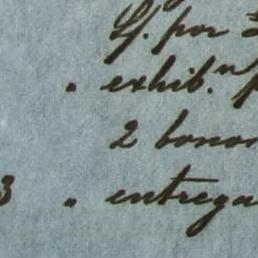 Lf. por
" exhib.n p
2 bonos
3 " entrega